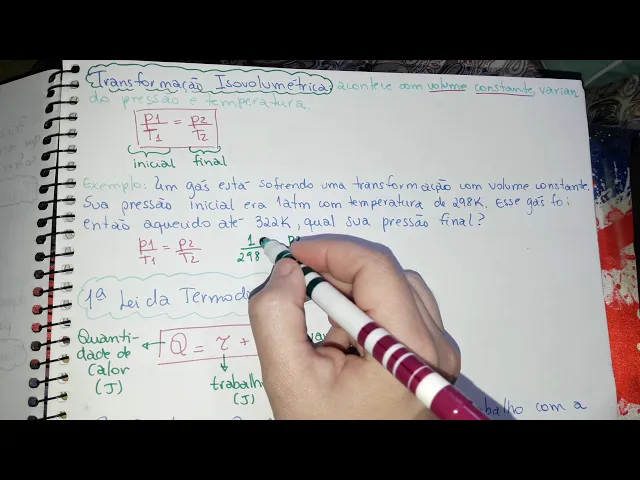 Transformação Isovolumétrica: acontece com volume constante, varian
do pressão e temperatura.
p1/T1 = p2/T2
inicial final
Exemplo: Um gás está sofrendo uma transformação com volume constante.
Sua pressão inicial era 1atm com temperatura de 298K. Esse gás foi
então aquecido até 322K, qual sua pressão final?
p1/T1 = p2/T2 1/298 p2
1ª Lei da Termodi
Quanti-
dade de
Calor
(J)
Q = τ +
trabalho
(J)
var
balho com a